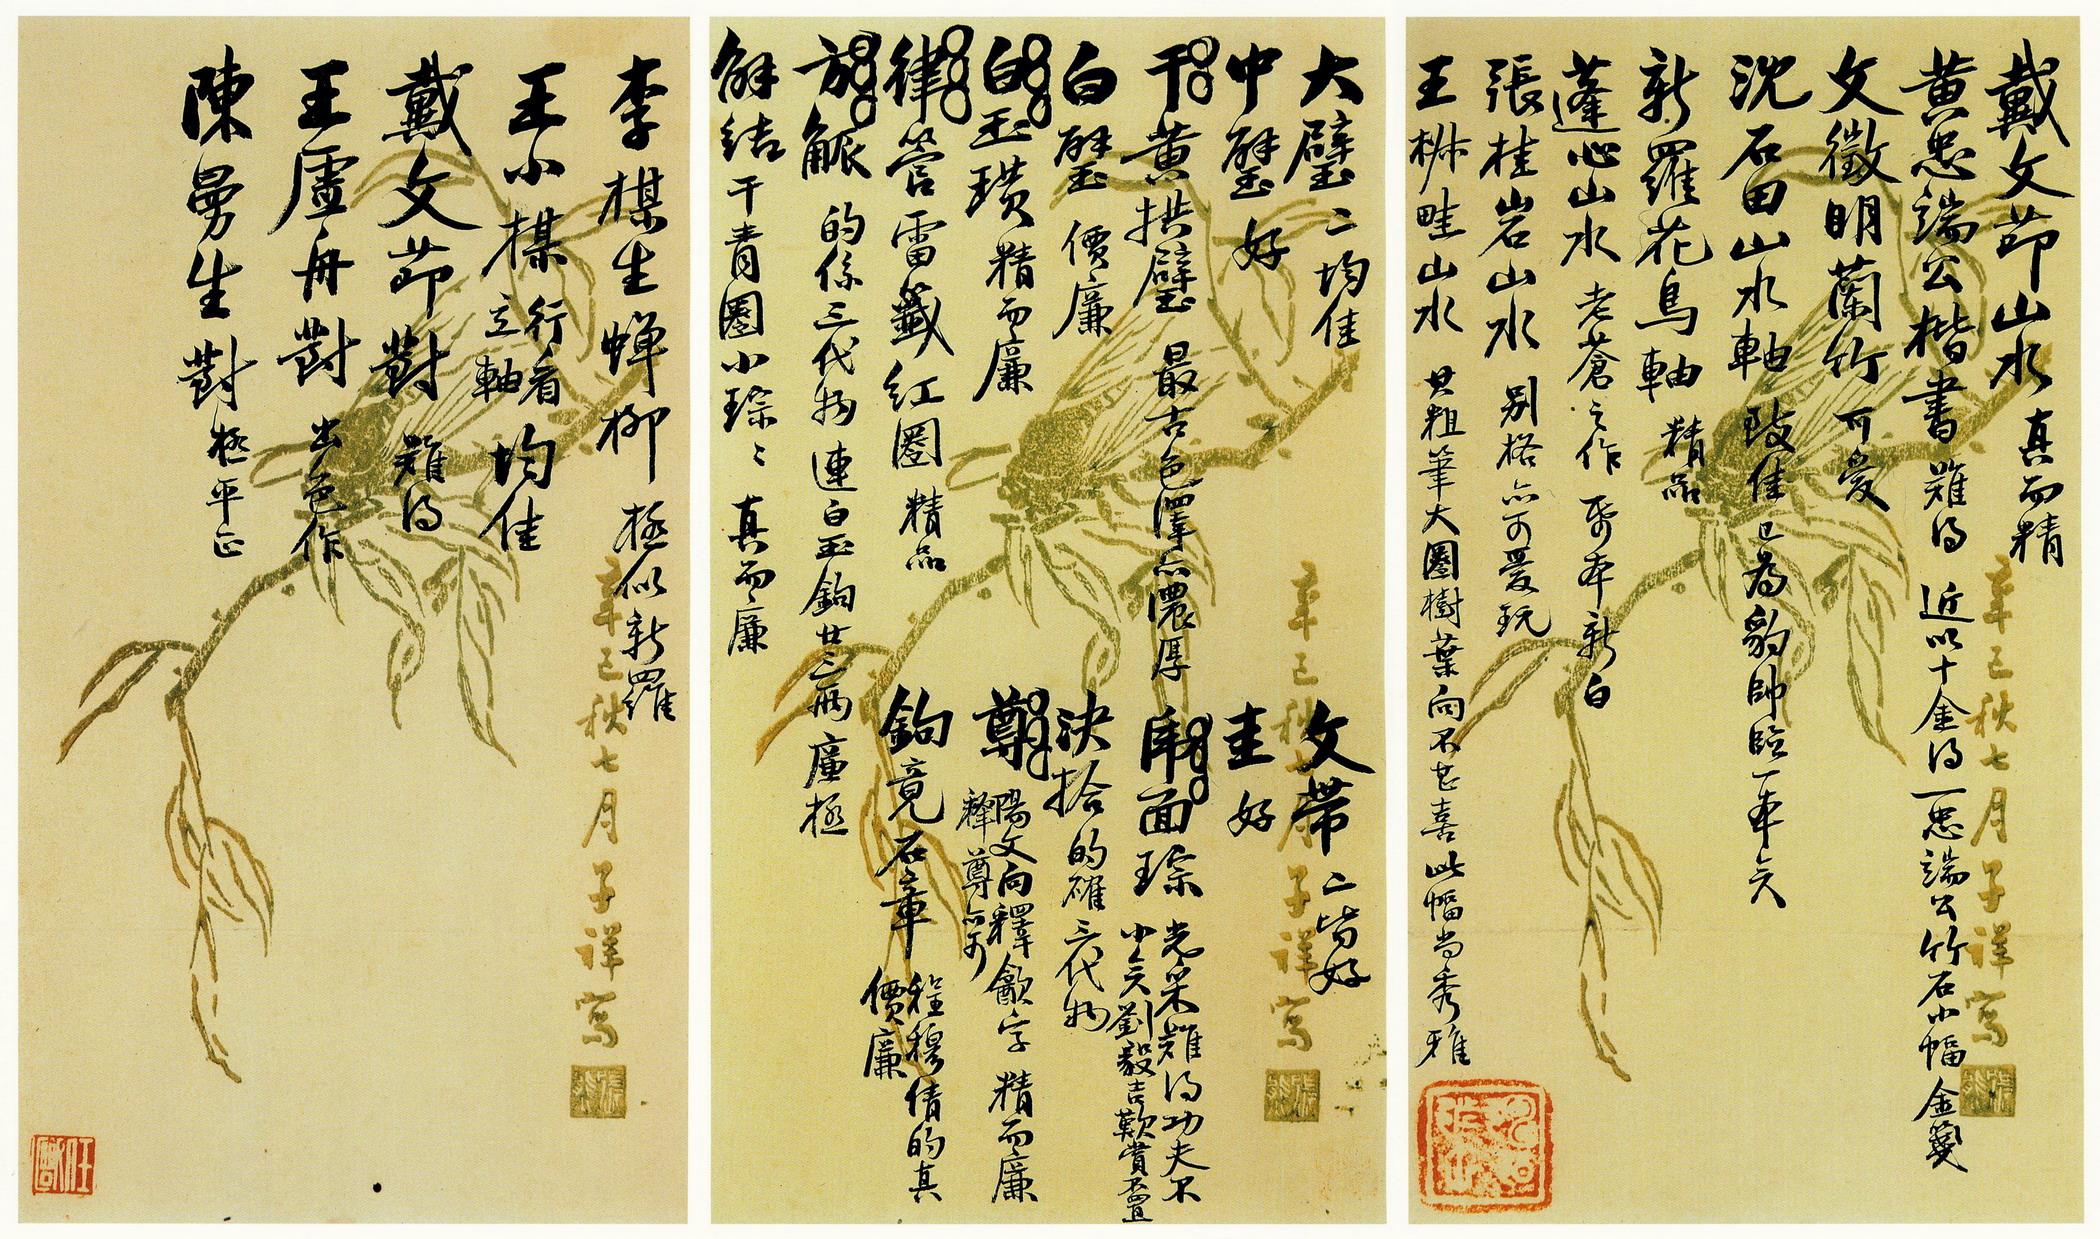 戴文節山水 真而精
黃忠端公楷書 難得 近以十金得一忠端公竹石小幅金箋
文徵明蘭竹 可愛
沈石田山水軸 致佳 已為豹帥臨一本矣
新羅花鳥軸 精品
蓬心山水 老蒼之作 帋本新白
張桂岩山水 別格亦可愛玩
王椒畦山水 其粗筆大圈樹葉向不甚喜此幅尚秀雅
大璧二均佳
中璧好
干黃拱璧 最古色澤亦濃厚
白璧 價廉
白玉璜精而廉
律管雷籤紅圈 精品
觚 的係三代物 連白玉鉤廿三兩 廉極
解結干青圈小琮二 真而廉
文帶二皆好
圭好
面琮 光采難得功夫不
小矣劉毅吉歎賞不置
決拾的確三代物
尊 陽文向釋龢字 精而廉
釋尊亦可
鉤竟石章 程穆倩的真
價廉
李楳生蟬柳 極似新羅
王小楳 行看
立軸 均佳
戴文節對 難得
王虛舟對 出色作
陳曼生對 極平正
辛巳秋七月子祥寫
辛巳秋七月子祥寫
辛巳秋七月子祥寫